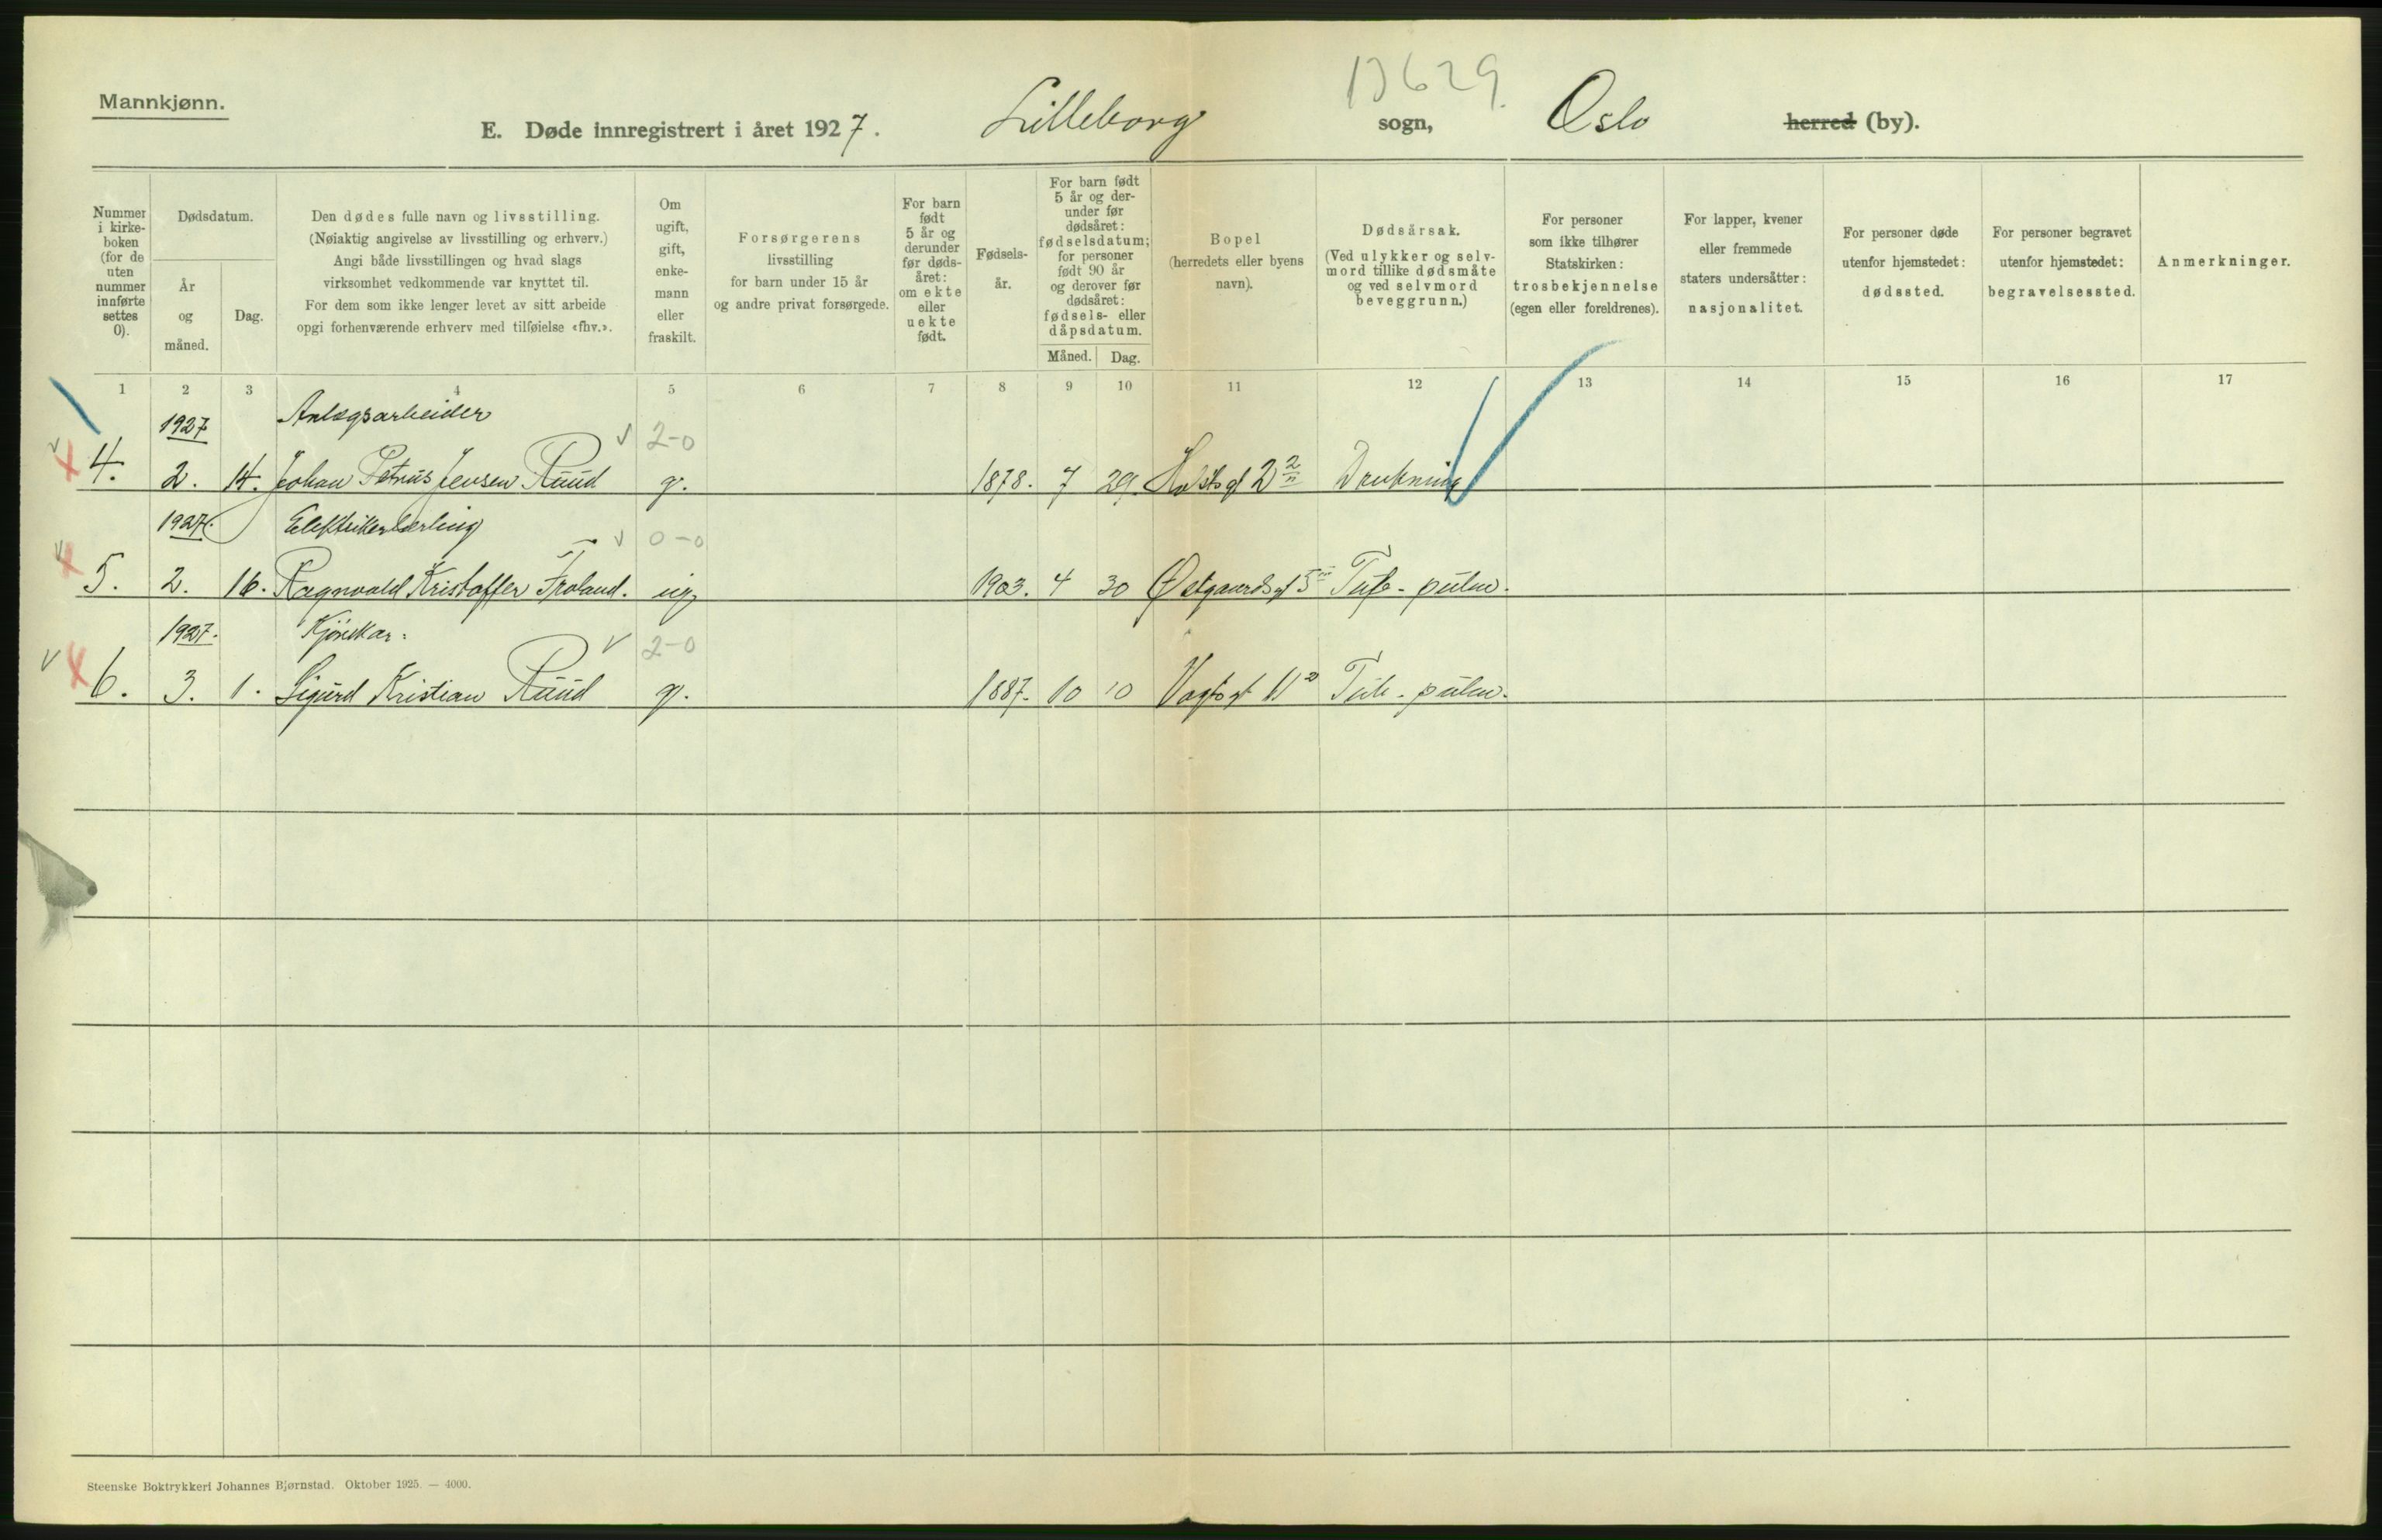 Mannkjønn.
13629.
E. Døde innregistrert i året 1927. Lilleborg sogn, Oslo herred (by).
Nummer i kirke-boken (for de uten nummer innførte settes 0).
Dødsdatum.
År og måned.
Dag.
Den dødes fulle navn og livsstilling.
(Nøiaktig angivelse av livsstilling og erhverv.)
Angi både livsstillingen og hvad slags
virksomhet vedkommende var knyttet til.
For dem som ikke lenger levet av sitt arbeide
opgi forhenværende erhverv med tilføielse «fhv.».
Om ugift, gift, enke-mann eller fraskilt.
Forsørgerens
livsstilling
for barn under 15 år
og andre privat forsørgede.
For barn født 5 år og derunder før døds-året: om ekte eller uekte født.
Fødsels-år.
For barn født 5 år og der-under før dødsåret: fødselsdatum; for personer født 90 år og derover før dødsåret: fødsels- eller dåpsdatum.
Måned.
Dag.
Bopel
(herredets eller byens
navn).
Dødsårsak.
(Ved ulykker og selv-
mord tillike dødsmåte
og ved selvmord
beveggrunn.)
For personer
som ikke tilhører
Statskirken:
trosbekjennelse
(egen eller foreldrenes).
For lapper, kvener
eller fremmede
staters undersåtter:
nasjonalitet.
For personer døde
utenfor hjemstedet:
dødssted.
For personer begravet
utenfor hjemstedet:
begravelsessted.
Anmerkninger.
1 2 3 4 5 6 7 8 9 10 11 12 13 14 15 16 17
1927 Anlægsarbeider 2-0
4. 2. 14. Johan Petrus Jensen Ruud g. 1878. 7 29. Holsts gt 2 2/n Drukning
1927. Elektrikerlærling 0-0
5. 2. 16. Ragnvald Kristoffer Froland. ug. 1903. 4 30 Østgaardsgt 5 Tub. pulm.
1927. Kjørekar. 2-0
6. 3. 1. Sigurd Kristian Ruud g. 1887. 10 10 Vogtsgt Tub. pulm.
Steenske Boktrykkeri Johannes Bjørnstad. Oktober 1925. — 4000.